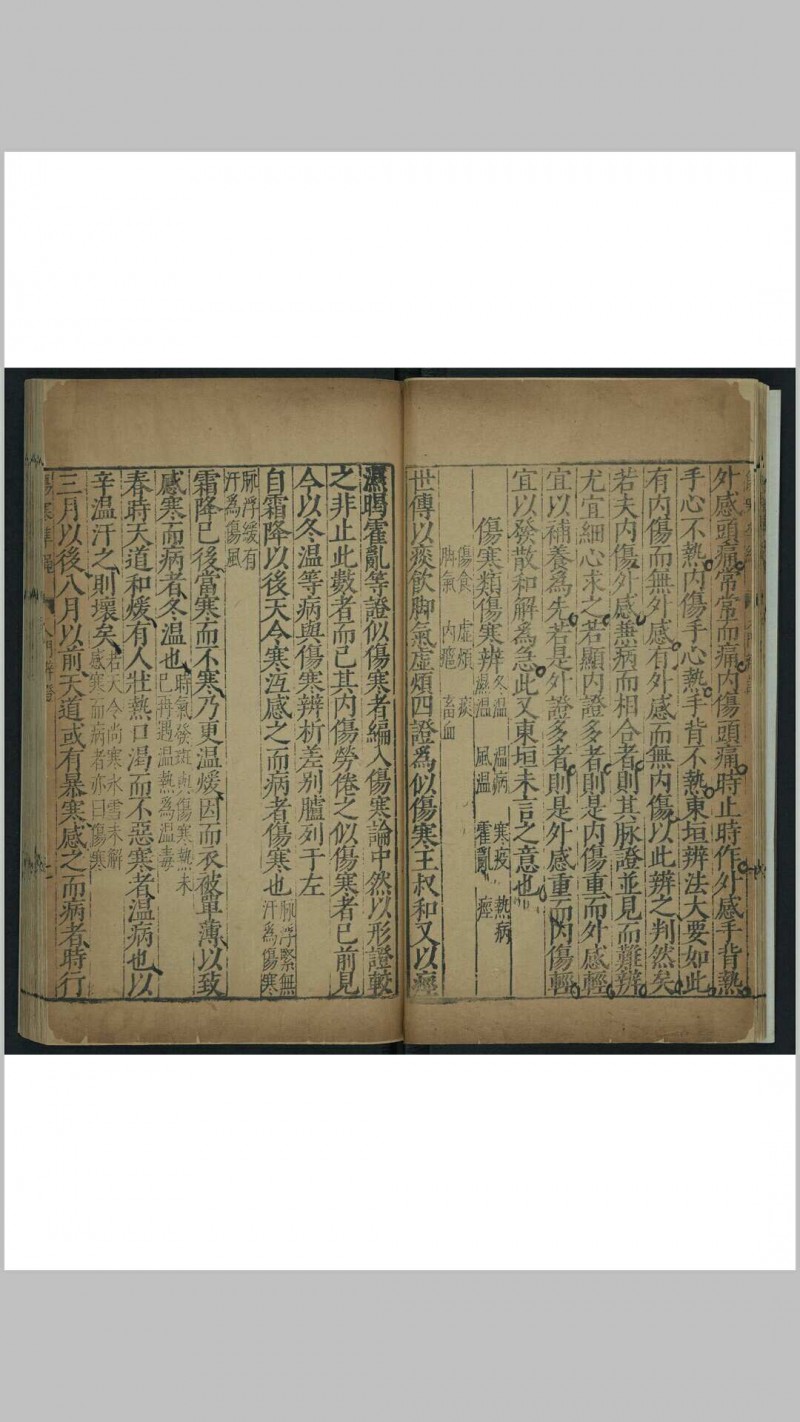 外感頭痛常常而痛內傷頭痛時止時作外感手背熱
手心不熱內傷手心熱手背不熱東垣辨法大要如此
有內傷而無外感有外感而無內傷以此辨之判然矣
若夫內傷外感兼病而相合者則其脉證並見而難辨
尤宜細心求之若顯內證多者則是內傷重而外感輕
宜以補養爲先若是外證多者則是外感重而內傷輕
宜以發散和解爲急此又東垣未言之意也
傷寒類傷寒辨冬温 温病 寒疫 熱病
濕温 風温 霍亂 痙
傷食 虛煩 痰
脚氣 內癰 畜血
世傳以痰飲脚氣虛煩四證爲似傷寒王叔和又以痙
濕暍霍亂等證似傷寒者編入傷寒論中然以形證較
之非止此數者而已其內傷勞倦之似傷寒者已前見
今以冬温等病與傷寒辨析差别臚列于左
自霜降以後天令寒沍感之而病者傷寒也脉浮緊無
汗爲傷寒
脉浮緩有
汗爲傷風
霜降已後當寒而不寒乃更温煖因而衣被單薄以致
感寒而病者冬温也時氣發斑與傷寒熱未
已再遇温熱爲温毒
春時天道和煖有人壯熱口渴而不惡寒者温病也以
辛温汗之則壞矣若天令尚寒氷雪未解
感寒而病者亦曰傷寒
三月以後八月以前天道或有暴寒感之而病者時行